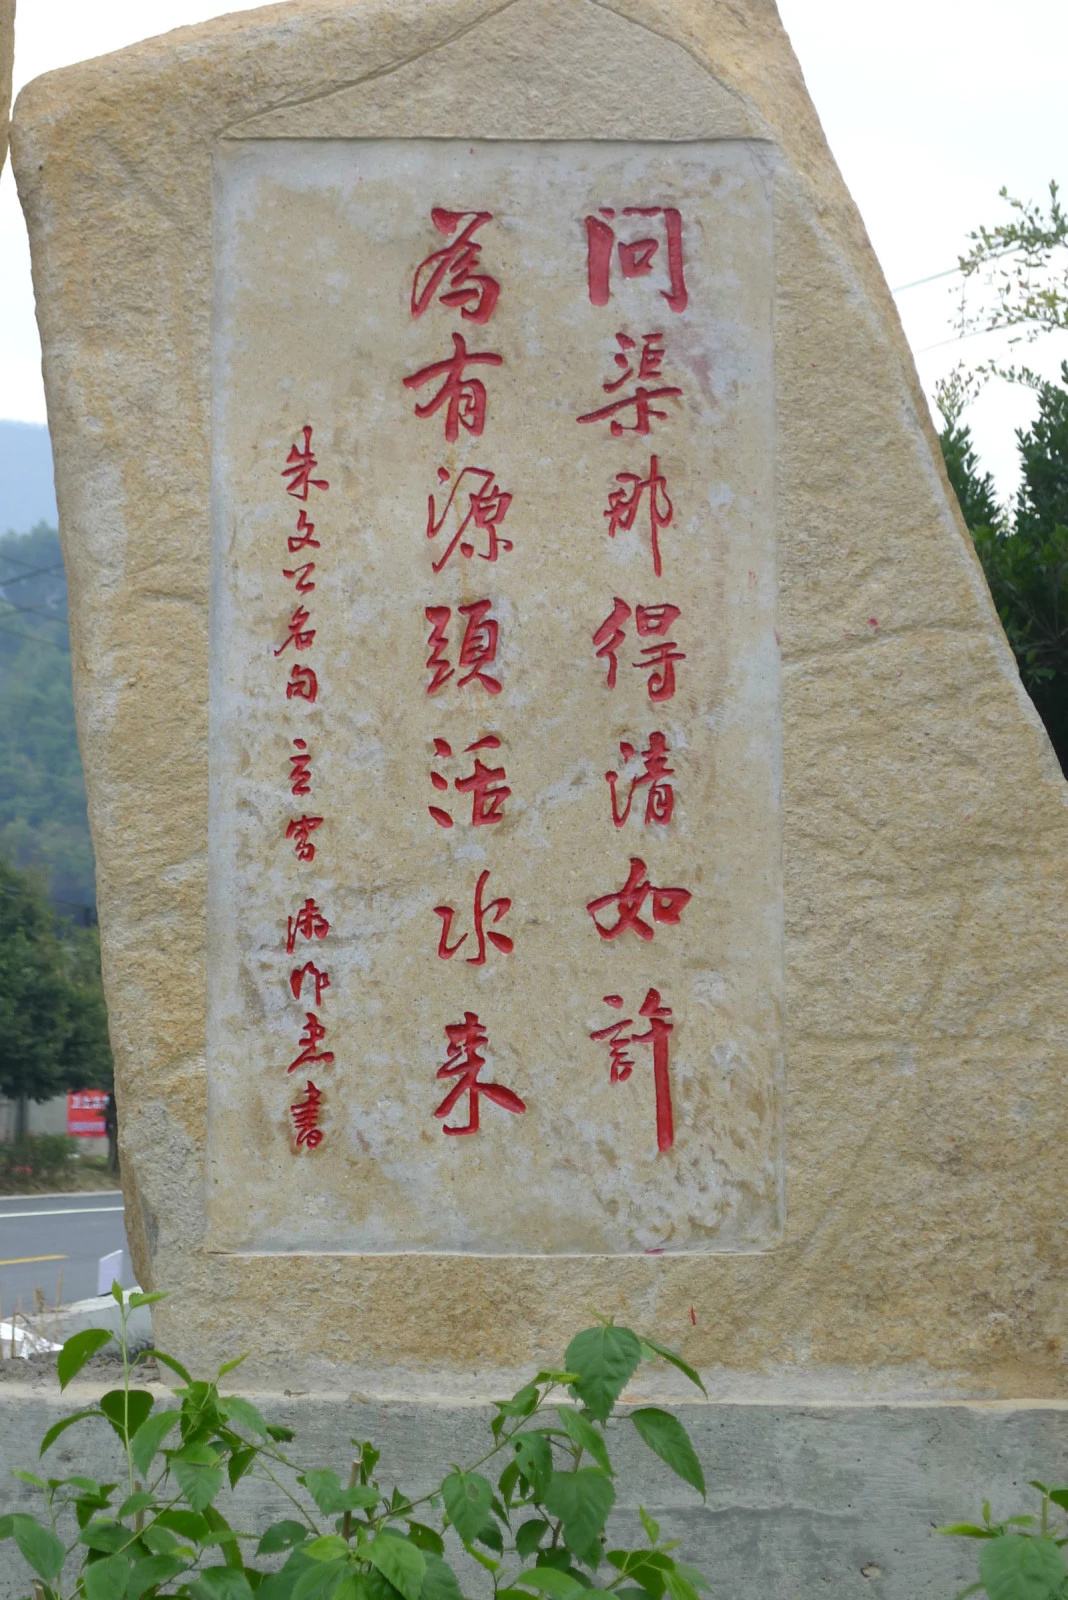 问渠那得清如許
為有源頭活水来
朱文公名句 立雪 作忠書